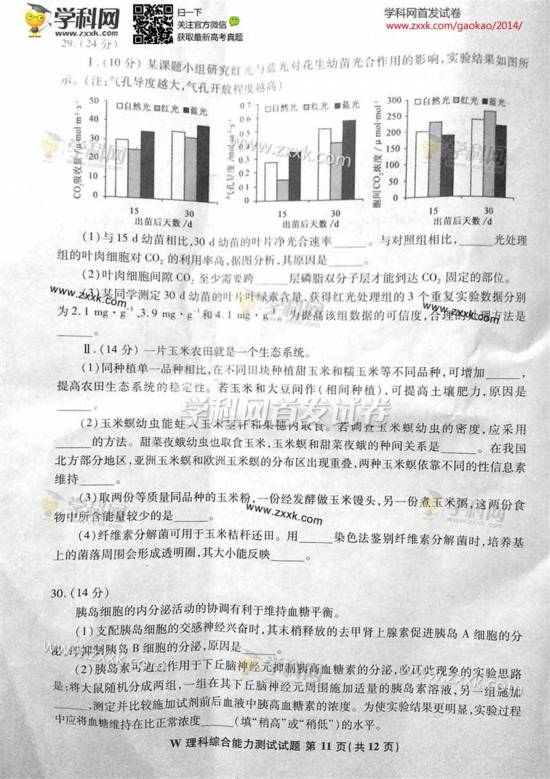 学科网
ZXXK.COM
扫一下
关注官方微信
获取最新高考真题
学科网首发试卷
www.zxxk.com/gaokao/2014/
29.(24分)
Ⅰ.(10分)某课题小组研究红光与蓝光对花生幼苗光合作用的影响,实验结果如图所
示。(注:气孔导度越大,气孔开放程度越高)
CO₂吸收量/μmol·m⁻²·s⁻¹
50
40
30
20
10
0
□自然光 ■红光 ■蓝光
15 30
出苗后天数/d
气孔导度/mol·m⁻²·s⁻¹
0.7
0.6
0.5
0.4
0.3
0.2
0.1
0
□自然光 ■红光 ■蓝光
15 30
出苗后天数/d
胞间CO₂浓度/μmol·mol⁻¹
300
250
200
150
100
50
0
□自然光 ■红光 ■蓝光
15 30
出苗后天数/d
(1)与15 d幼苗相比,30 d幼苗的叶片净光合速率______。与对照组相比,______光处理
组的叶肉细胞对CO₂的利用率高,据图分析,其原因是______。
(2)叶肉细胞间隙CO₂至少需要跨______层磷脂双分子层才能到达CO₂固定的部位。
(3)某同学测定30 d幼苗的叶片叶绿素含量,获得红光处理组的3个重复实验数据分别
为2.1 mg·g⁻¹、3.9 mg·g⁻¹和4.1 mg·g⁻¹。为提高该组数据的可信度,合理的处理方法是
______。
Ⅱ.(14分)一片玉米农田就是一个生态系统。
(1)同种植单一品种相比,在不同田块种植甜玉米和糯玉米等不同品种,可增加______,
提高农田生态系统的稳定性。若玉米和大豆间作(相间种植),可提高土壤肥力,原因是
______。
(2)玉米螟幼虫能蛀入玉米茎秆和果穗内取食。若调查玉米螟幼虫的密度,应采用
______的方法。甜菜夜蛾幼虫也取食玉米,玉米螟和甜菜夜蛾的种间关系是______。在我国
北方部分地区,亚洲玉米螟和欧洲玉米螟的分布区出现重叠,两种玉米螟依靠不同的性信息素
维持______。
(3)取两份等质量同品种的玉米粉,一份经发酵做玉米馒头,另一份煮玉米粥,这两份食
物中所含能量较少的是______。
(4)纤维素分解菌可用于玉米秸秆还田。用______染色法鉴别纤维素分解菌时,培养基
上的菌落周围会形成透明圈,其大小能反映______。
30.(14分)
胰岛细胞的内分泌活动的协调有利于维持血糖平衡。
(1)支配胰岛细胞的交感神经兴奋时,其末梢释放的去甲肾上腺素促进胰岛A细胞的分
泌,却抑制胰岛B细胞的分泌,原因是______。
(2)胰岛素可通过作用于下丘脑神经元抑制胰高血糖素的分泌,验证此现象的实验思路
是:将大鼠随机分成两组,一组在其下丘脑神经元周围施加适量的胰岛素溶液,另一组施加
______,测定并比较施加试剂前后血液中胰高血糖素的浓度。为使实验结果更明显,实验过程
中应将血糖维持在比正常浓度______(填“稍高”或“稍低”)的水平。
W 理科综合能力测试试题 第11页(共12页)